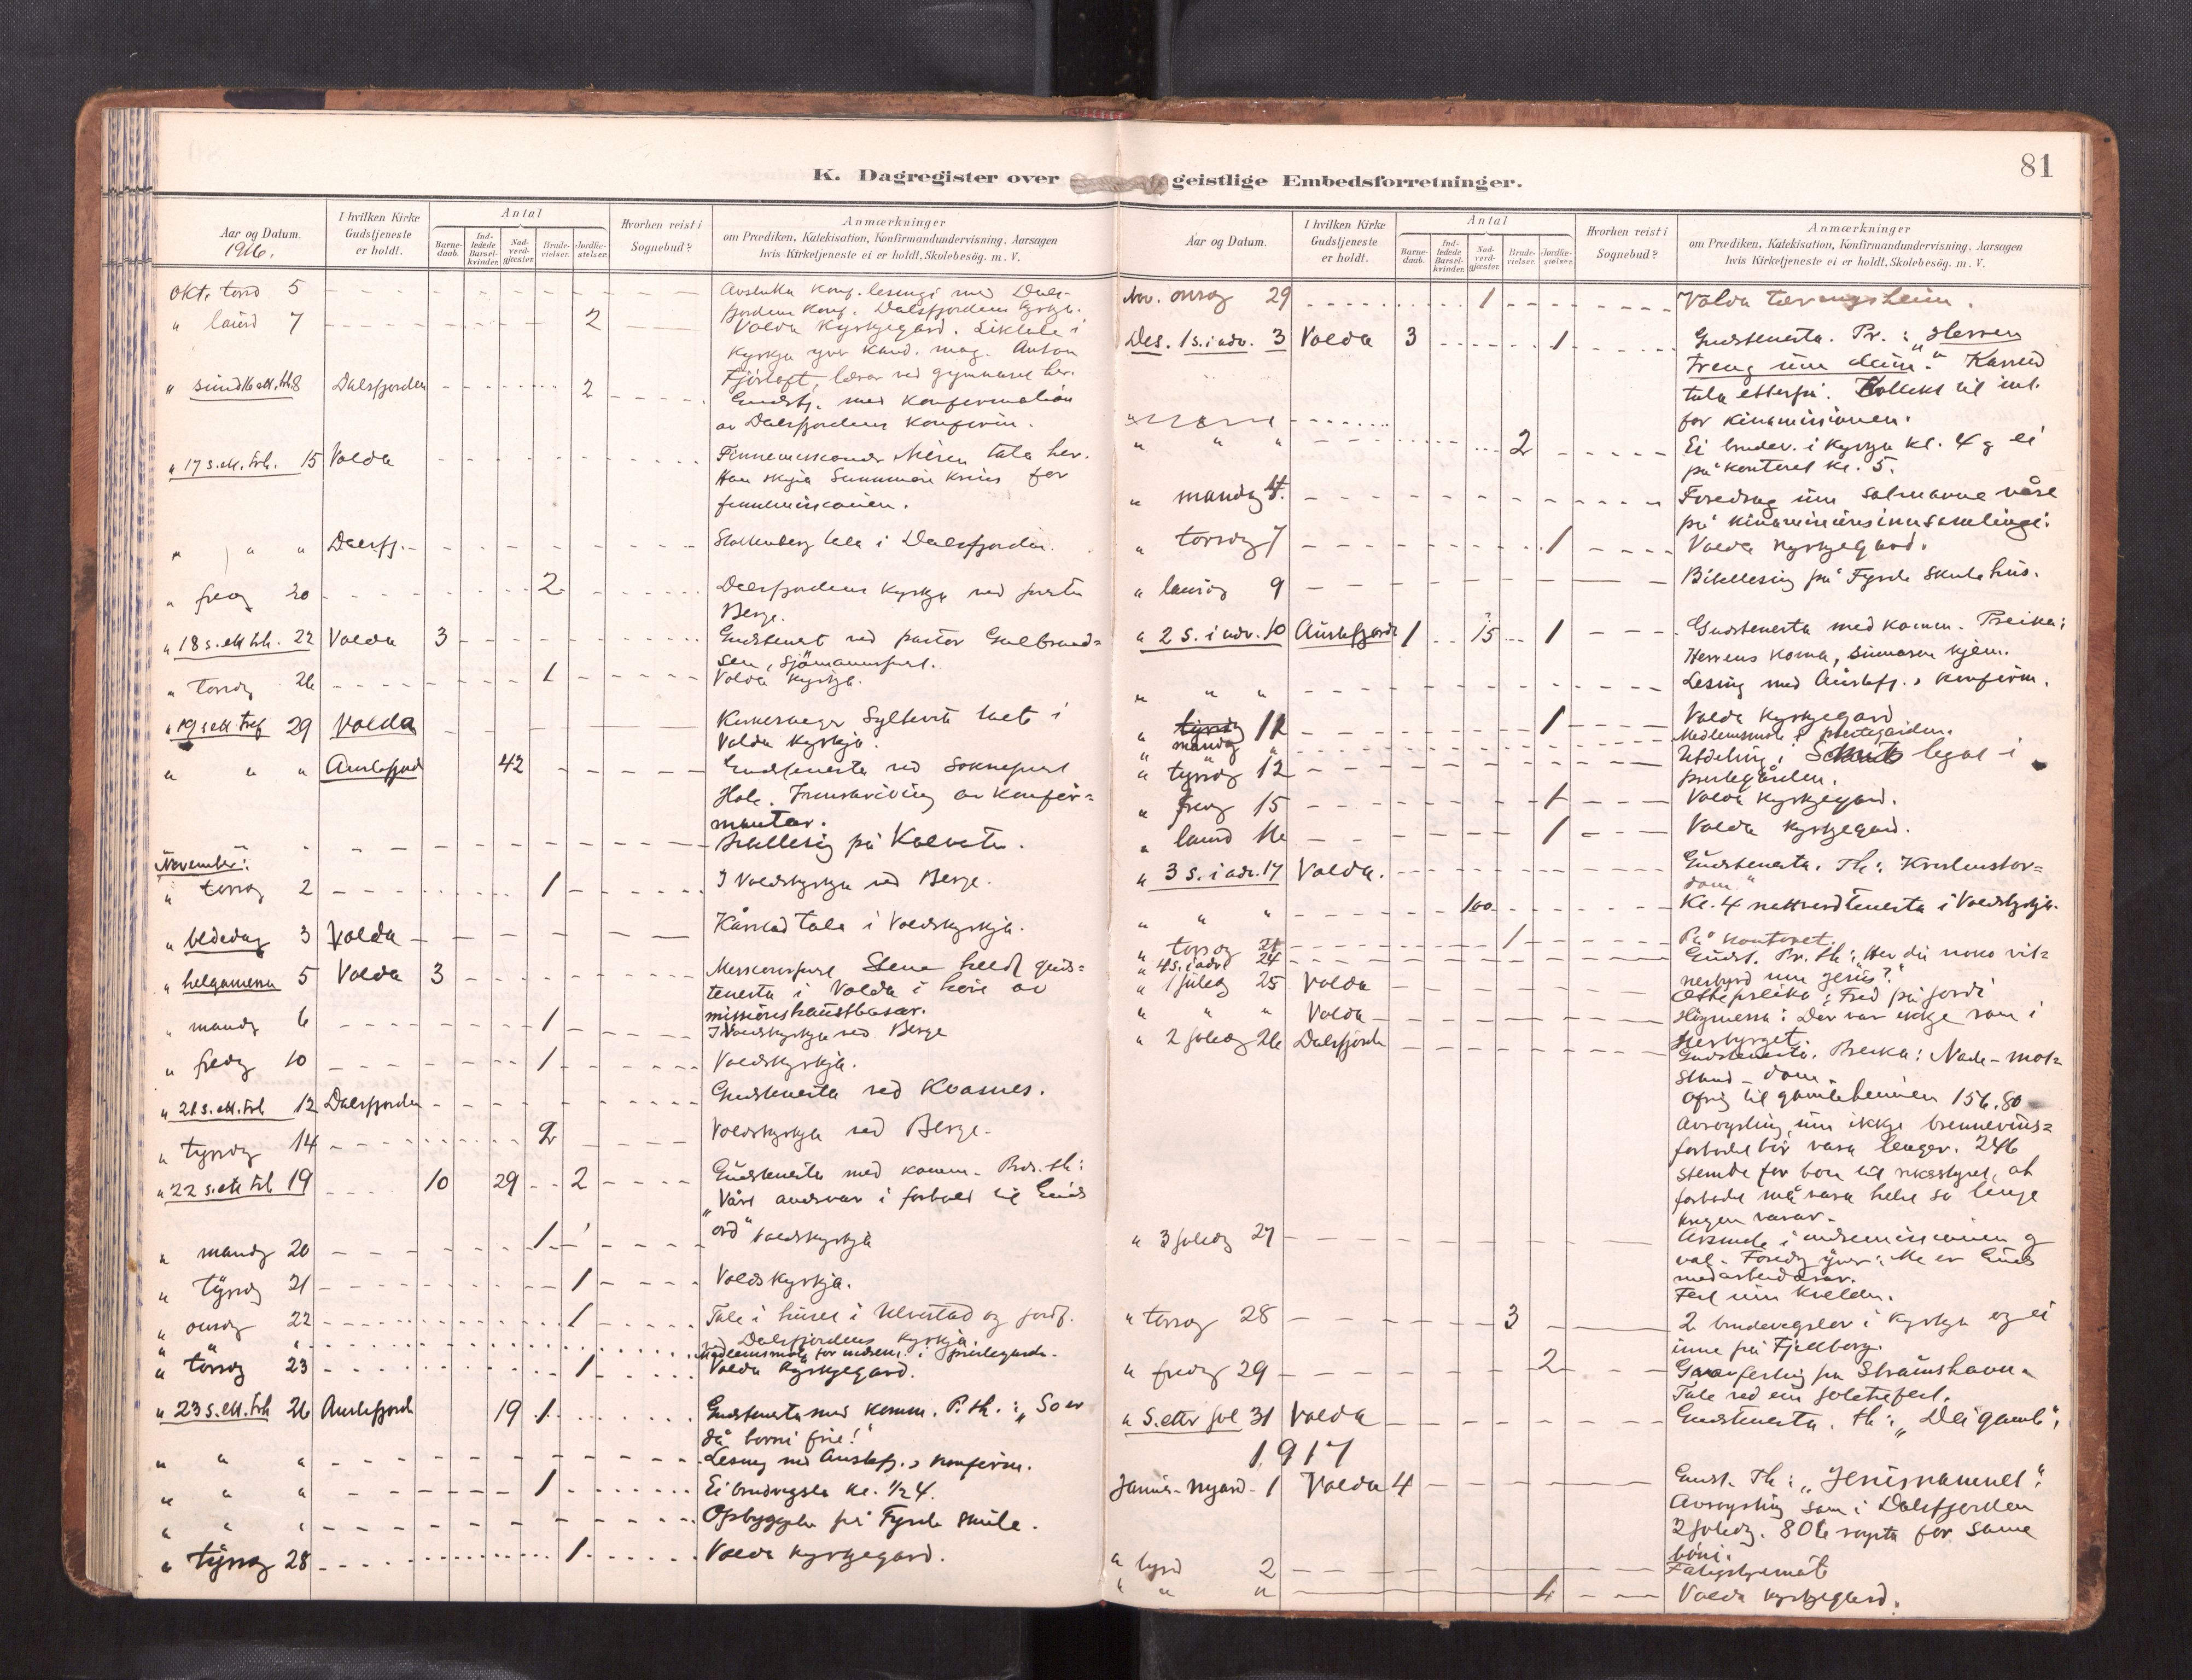 K. Dagregister over geistlige Embedsforretninger.
81
Aar og Datum.
1916.
I hvilken Kirke
Gudstjeneste
er holdt.
Antal
Barne-
daab.
Ind-
ledede
Barsel-
kvinder.
Nad-
verd-
gjæster.
Brude-
vielser.
Jordfæ-
stelser.
Hvorhen reist i
Sognebud?
Anmærkninger
om Prædiken, Katekisation, Konfirmandundervisning, Aarsagen
hvis Kirketjeneste ei er holdt, Skolebesög. m. V.
Okt. torsd 5 Avslutta konf. lesingi med Dals-
fjordens konf. Dalsfjordens kyrkja.
" laurd 7 2 Volda Kyrkjegard. Liktale i
kyrkja yver kand. mag. Anton
Fjörtoft, lærar ved gymnaset her.
" sund 16 ett. trh 8 Dalsfjorden 2 Gudstj. med konfirmation
av Dalsfjordens konfirm.
" 17 s. ett. trh. 15 Volda Finnemissionær tala her.
Han Sunnmöre krins for
finnemissionen.
" " " Dalsfj. Stoltenberg tala i Dalsfjorden.
" fredag 20 2 Dalsfjordens kyrkja ved presten
Berge.
" 18 s. ett trh. 22 Volda 3 Gudstenest ved pastor Gulbrand-
sen, Sjömannsprest.
" torsdag 26 1 Volda kyrkja.
" 19 s ett tref 29 Volda
Volda kyrkja.
" " " Austefjord 42 Gudstenesta ved Sokneprest
Hole. Innskriving av konfir-
mantar.
Bibellesing på Kalvatn.
November:
" torsdag 2 1 I Voldskyrkja ved Berge.
" bededag 3 Volda Kårstad tala i Voldskyrkja.
" helgamessa 5 Volda 3 Stene heldt guds-
tenesta i Volda i höve av
missionshaustbasar.
" mandag 6 1 I Voldskyrkja ved Berge
" fredag 10 1 Voldskyrkja.
" 21 s. ett. trh 12 Dalsfjorden Gudstenesta ved Kvasnes.
" tysdag 14 2 Voldskyrkja ved Berge.
" 22 s. ett trh 19 10 29 2 Gudstenesta med komm. Prds. th:
"Vårt andsvar i forhold til Guds
ord"
" mandag 20 1 Voldskyrkja
" tysdag 21 1 Voldskyrkja.
" onsdag 22 1 Tale i huset i Ulvestad og jordf.
ved Dalsfjordens kyrkja.
" " Medlemsmöte for indrem. i prestegarden.
" torsdag 23 1 Volda kyrkjegard.
" 23 s. ett. trh 26 Austefjord 19 1 Gudstenesta med komm. P. th.: "So er
då borni frie!"
" " " Lesing med Austefj.s konfirm.
" " " 1 Ei brudvigsla kl. 1/2 4.
" " " Opbyggjelse på Fyrde skule.
" tysdag 28 1 Volda kyrkjegard.
Aar og Datum.
I hvilken Kirke
Gudstjeneste
er holdt.
Antal
Barne-
daab.
Ind-
ledede
Barsel-
kvinder.
Nad-
verd-
gjæster.
Brude-
vielser.
Jordfæ-
stelser.
Hvorhen reist i
Sognebud?
Anmærkninger
om Prædiken, Katekisation, Konfirmandundervisning, Aarsagen
hvis Kirketjeneste ei er holdt, Skolebesög. m. V.
Nov. onsdag 29 1 Volda
Des. 1 s. i adv. 3 Volda 3 1 Gudstenesta. Pr.: "Herren
treng um deim." Kårstad
tala etterpå. Kollekt til int.
for kinamissionen.
" " " 2 Ei brudev. i kyrkja kl. 4 og ei
på kontoret kl. 5.
" mandag 4. Foredrag um salmarne våre
på
" torsdag 7 1 Volda kyrkjegard.
" laurdag 9 Bibellesing på Fyrde skulehus.
" 2 s. i adv. 10 Austefjord 1 15 1 Gudstenesta med komm. Preika:
Herrens koma,
" " " Lesing med Austefj.s konfirm.
" mandag 11 1 Volda kyrkjegard
" " Medlemsmöte i prestegarden.
" tysdag 12 Utdeling i legat i
prestegården.
" fredag 15 1 Volda kyrkjegard.
" laurd 16 1 Volda kyrkjegard.
" 3 s. i adv. 17 Volda. Gudstenesta. Th: Kristenstor-
dom."
" " " 100 Kl. 4 nattverdtenesta i Voldskyrkja.
" torsdag 21 1 På kontoret.
" 4 s. i advt 24 Gudst. Pr. th: "Her du noko vit-
nesbyrd um Jesus?"
" 1 juledag 25 Volda Ottepreika: Fred på jordi
" " " Volda Högmessa: Der var ikkje rom i
Herbyrget.
" 2 juledag 26 Dalsfjord Gudstenesta. Preika: Nade - mot-
stand - dom.
Ofring til gamleheimen 156.80
Avröysting um ikkje brennevins-
forbodet bör vara lenger. 246
stemde for bön til riksstyret, at
forbodet må vara heilt so lenge
krigen varar.
" 3 juledag 27 Årsmöte i indremissionen og
val. Foredrag yver: Me er Guds
medarbeidarar.
Fest um kvelden.
" torsdag 28 3 2 brudevigslor i kyrkja og ei
inne på Fjellborg.
" fredag 29 2
Tale ved ein joletrefest.
" S. etter jol 31 Volda Gudstenesta. th: "Det gamle".
1917
Januar - nyard - 1 Volda 4 Gudst. Th: "Jesusnamnet".
Avröysting som i Dalsfjorden
2 joledag. 806 röysta for same
böni.
" tysd 2 Fatigstyremöt
" " " 1 Volda kyrkjegard.